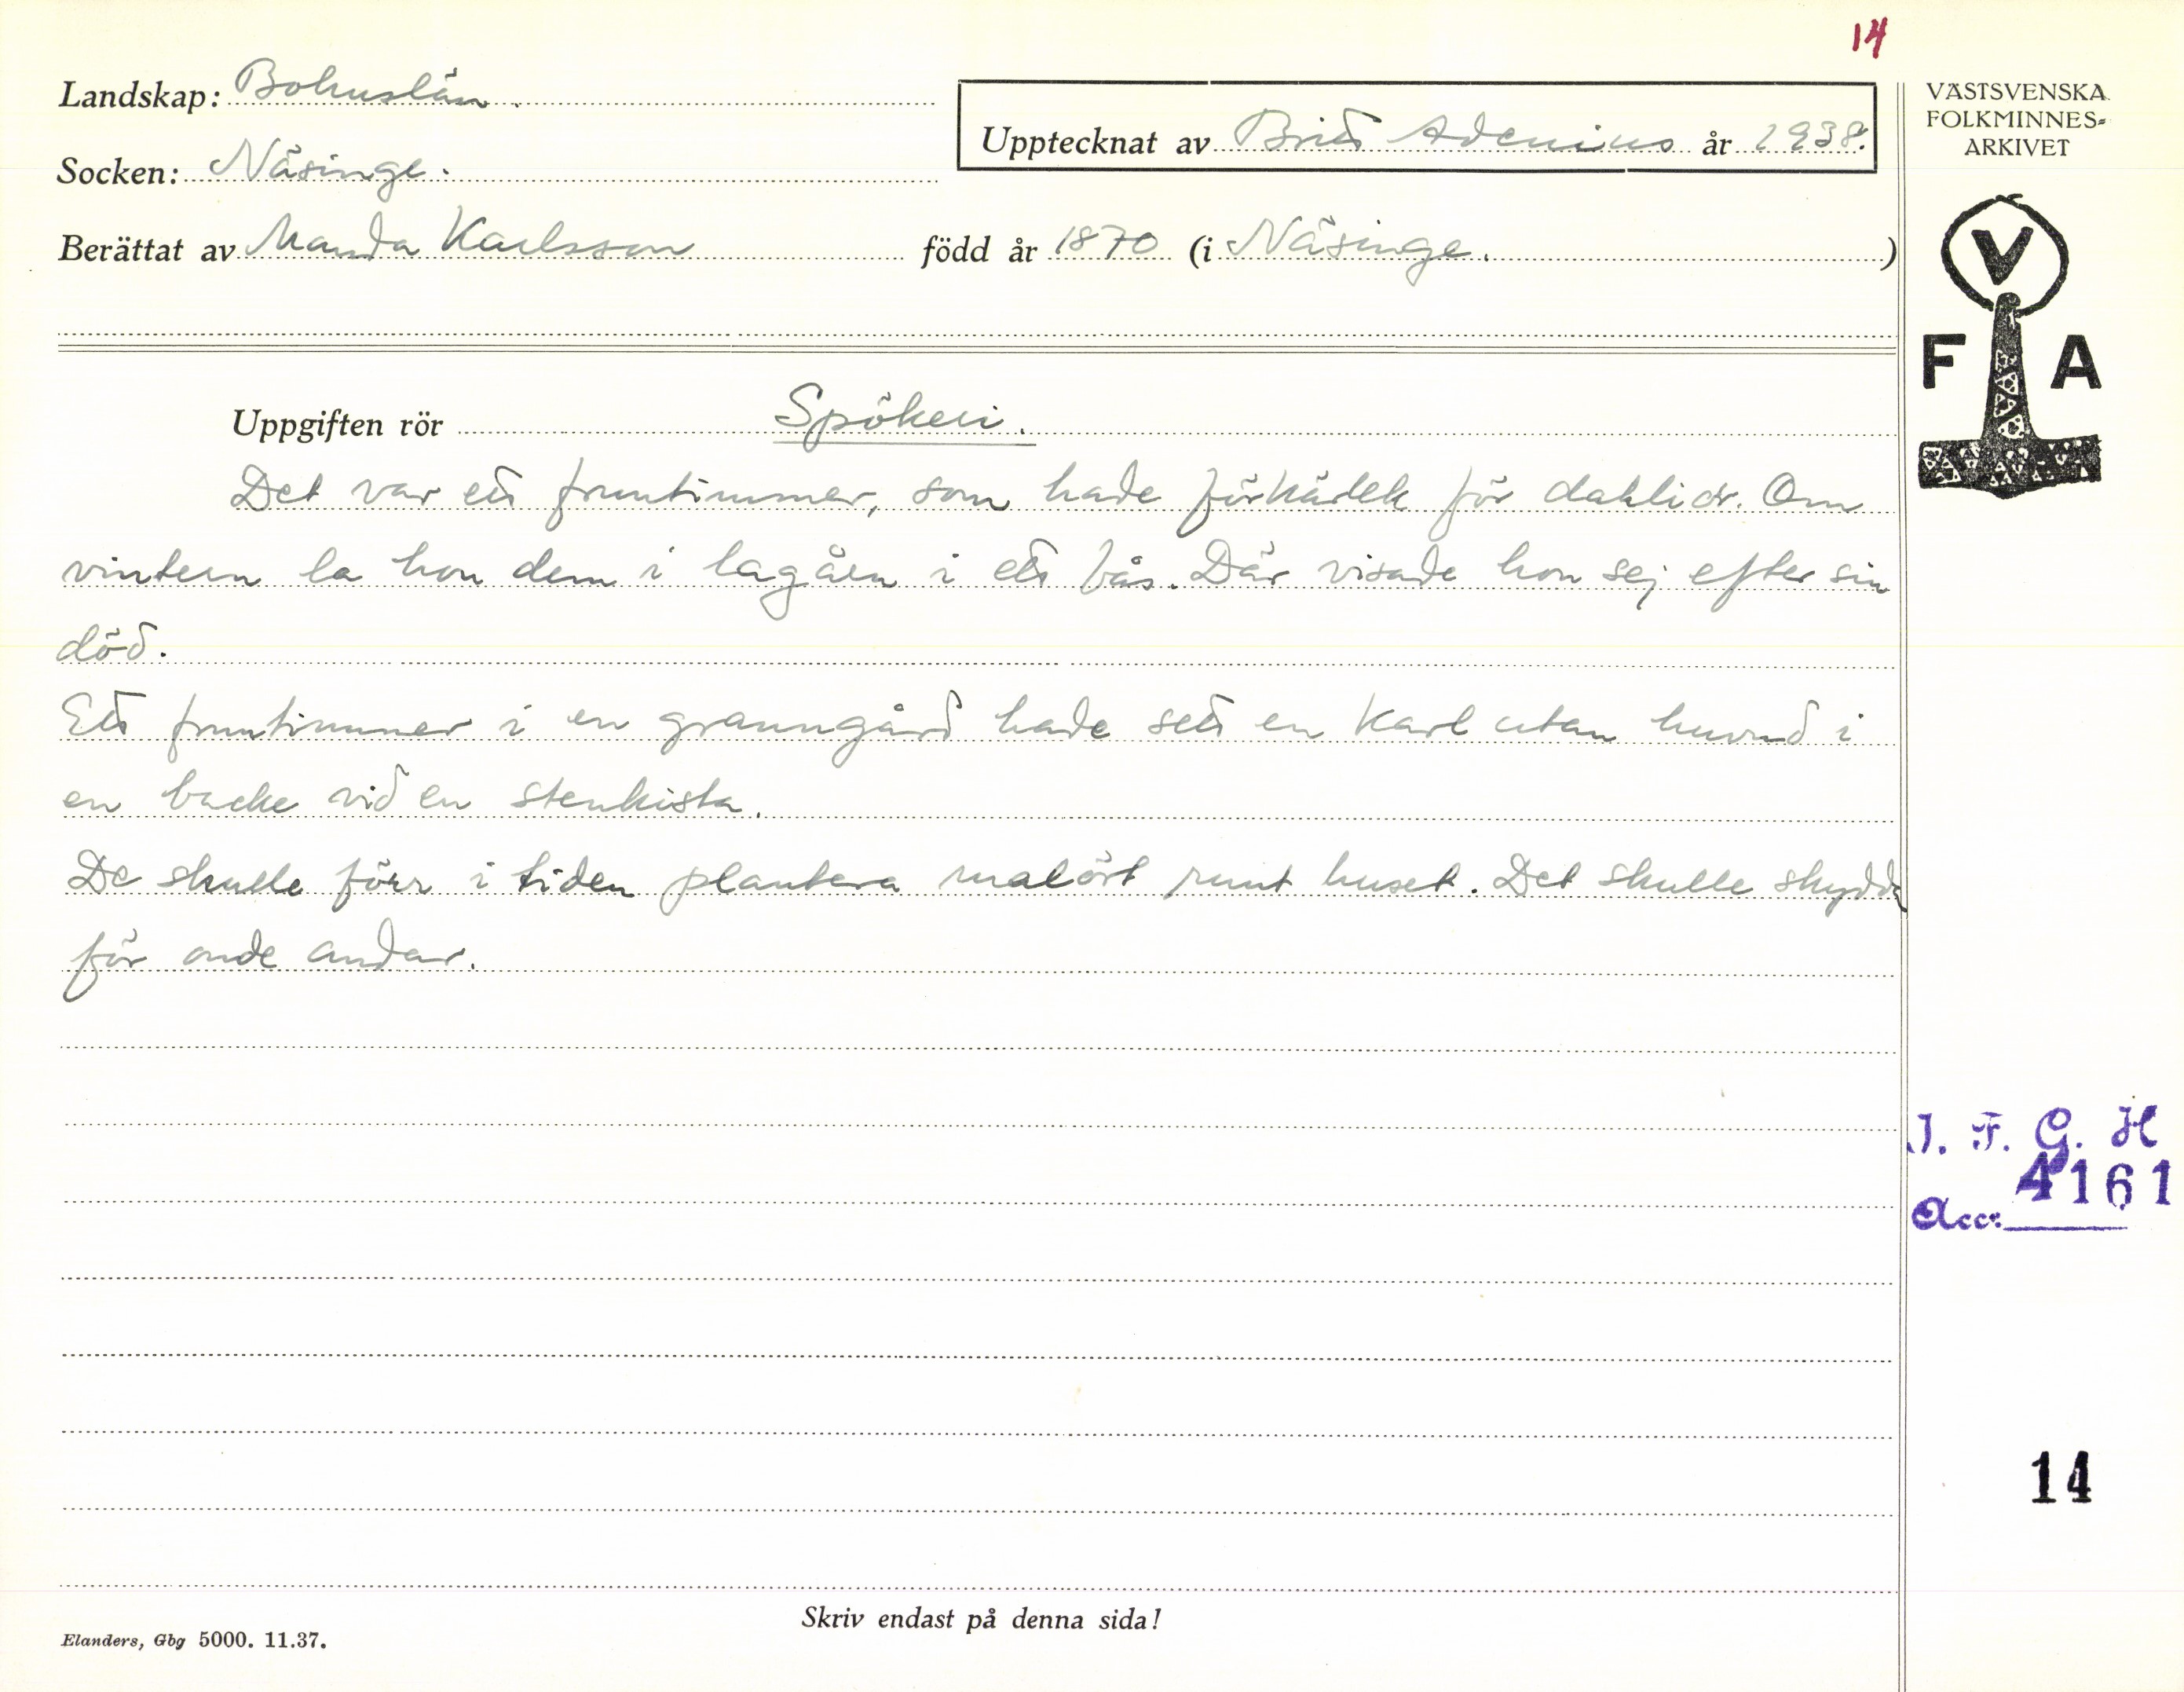 14
Landskap: Bohuslän.
Upptecknat av Britt Adenius år 1938.
Socken: Näsinge.
Berättat av Manda Karlsson född år 1870 (i Näsinge. )
VÄSTSVENSKA
FOLKMINNES=
ARKIVET
V
F A
Uppgiften rör Spökeri.
Det var ett fruntimmer, som hade förkärlek för dahlior. Om
vintern la hon dem i lagårn i ett bås. Där visade hon sej efter sin
död.
Ett fruntimmer i en granngård hade sett en karl utan huvud i
en backe vid en stenkista.
De skulle förr i tiden plantera malört runt huset. Det skulle skydda
för onde andar.
I. F. G. H
4161
Acc:
14
Skriv endast på denna sida!
Elanders, Gbg 5000. 11.37.